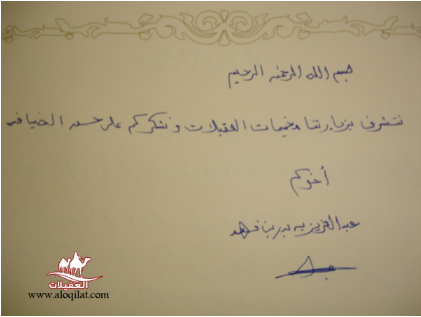 بسم الله الرحمن الرحيم
نتشرف بزيارتنا مخيمات العقيلات ونشكركم على حسن الضيافة
أخوكم
عبدالعزيز بن بدر بن فهد
العقيلات
www.aloqilat.com